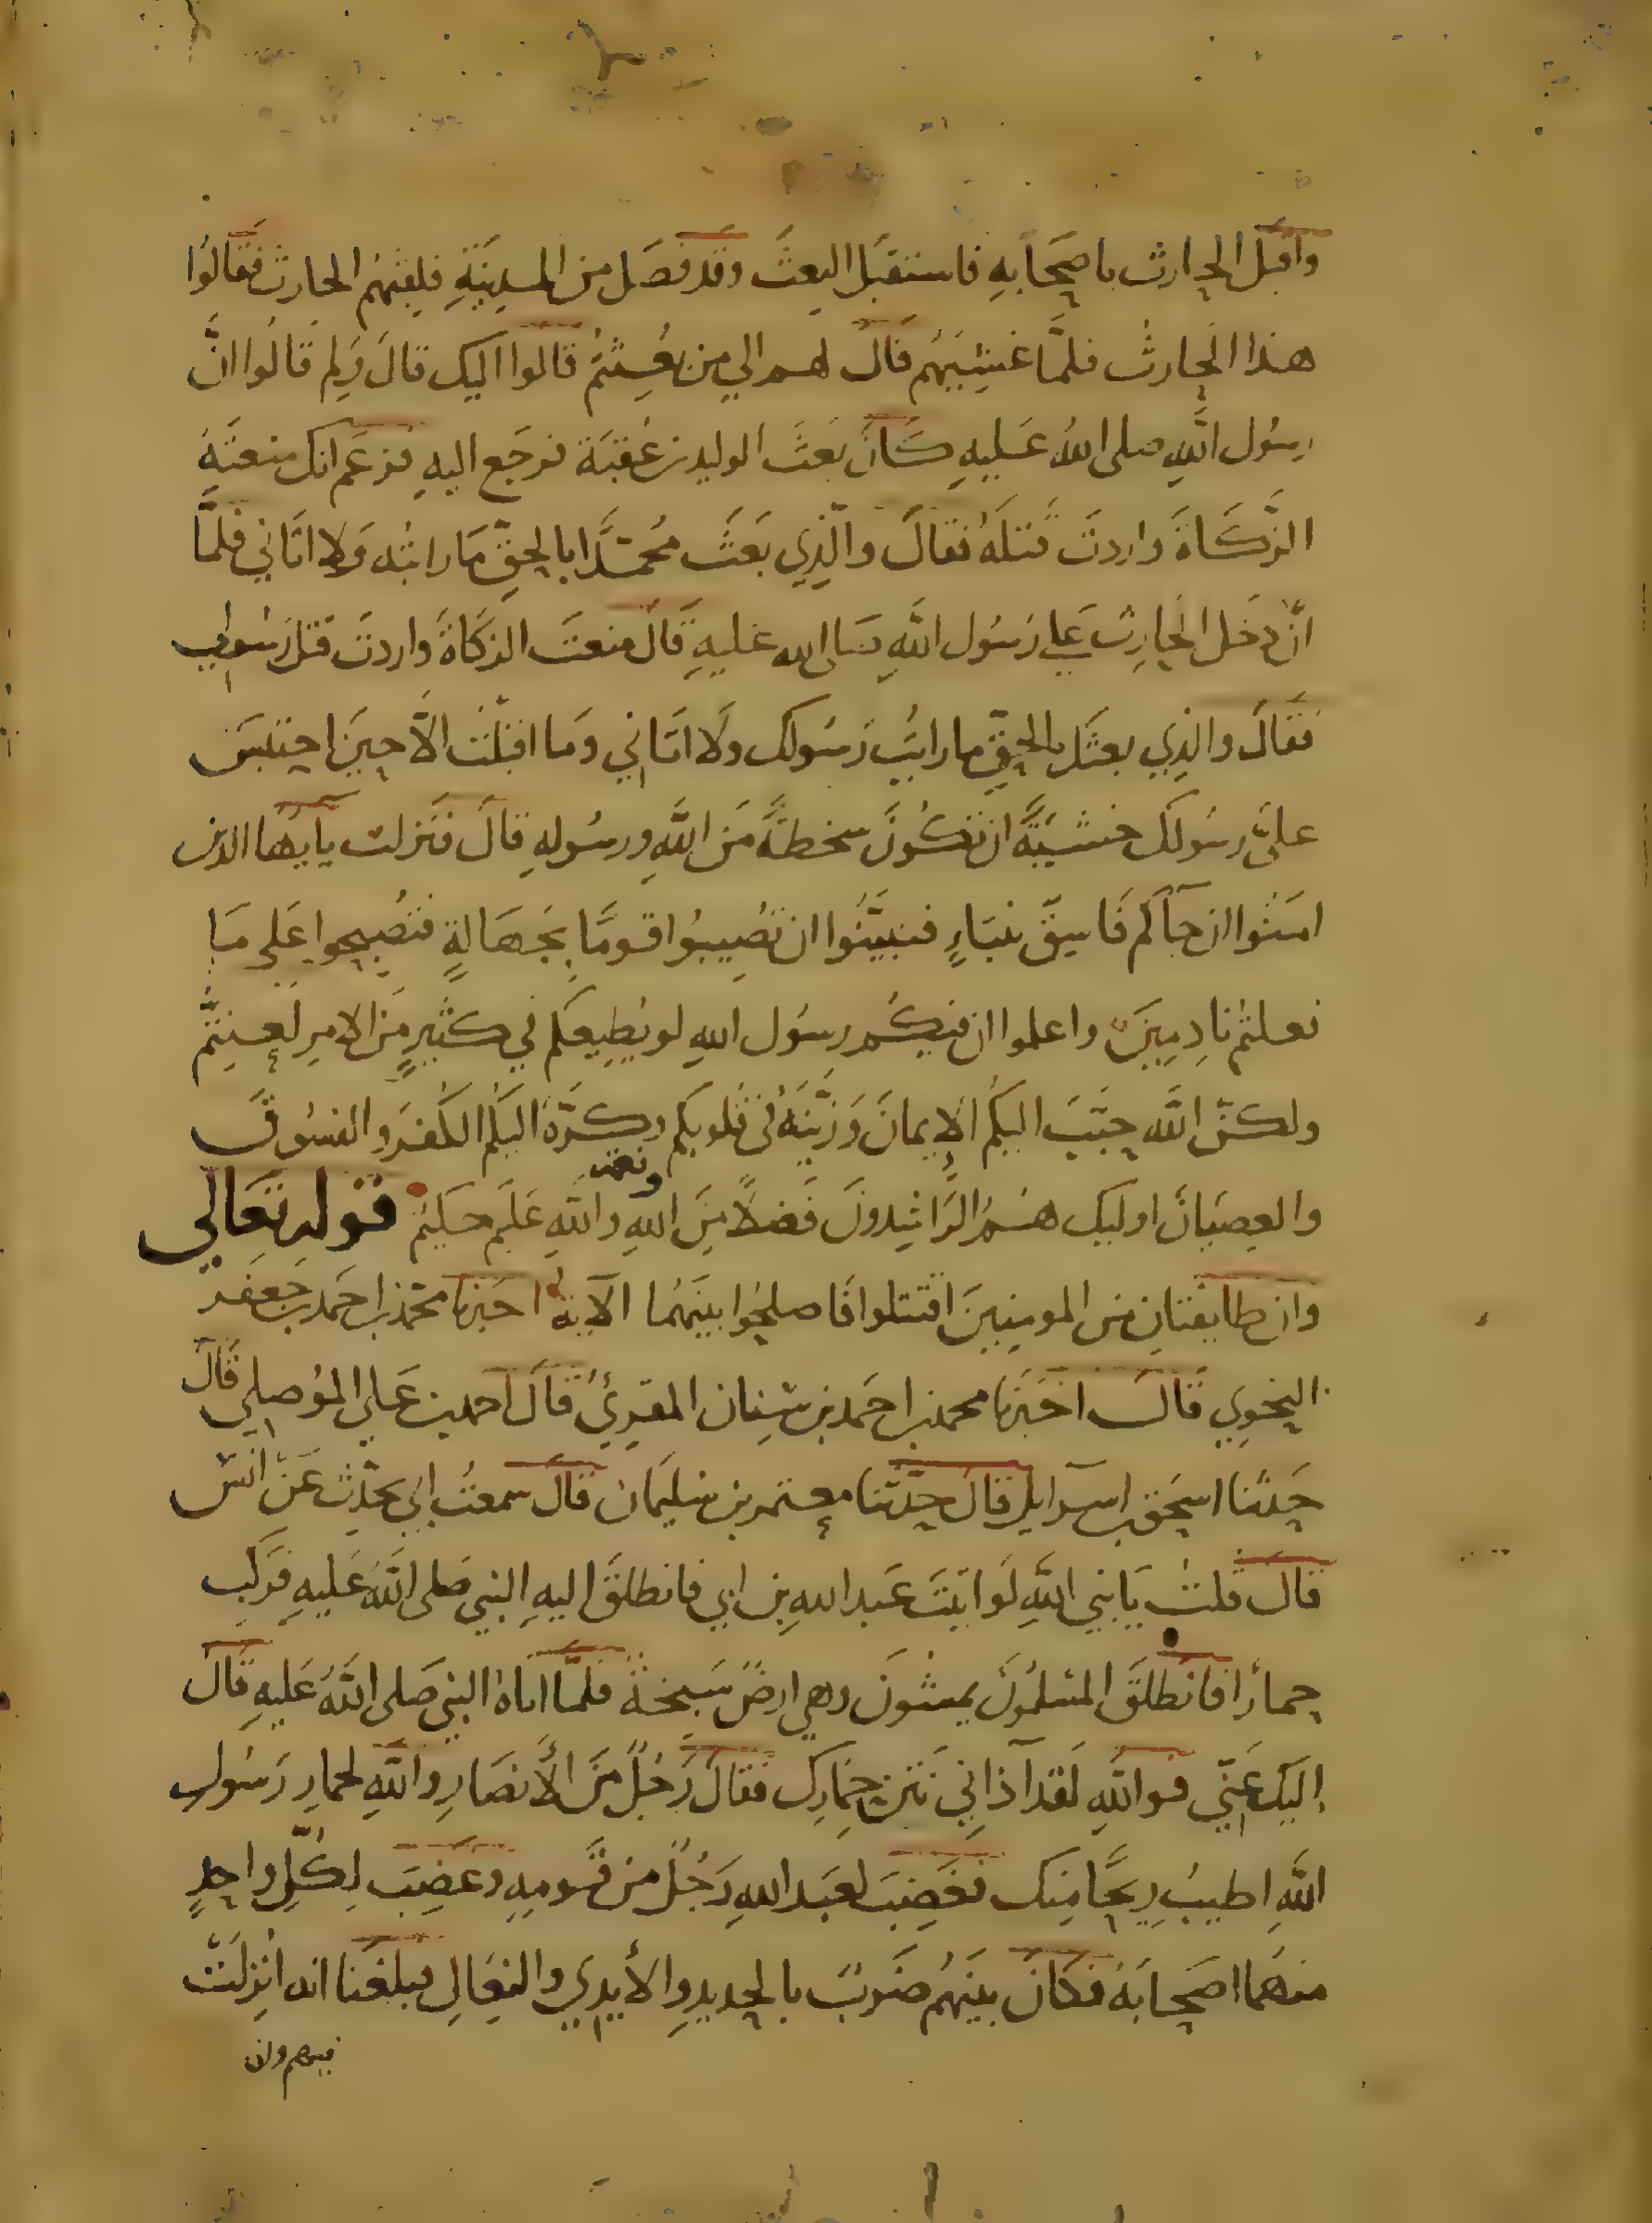 واقبل الحارث باصحابه فاستقبل البعث وقد فصل من المدينة فلقيهم الحارث فقالوا
هذا الحارث فلمّا غشيهم قال لهم الي من بُعثتم قالوا اليك قال ولم قالوا انّ
رسول اللَّه صلى الله عليه كان بعثَ الوليد بن عُقبَة فرجع اليه فزعم انك منعتَهُ
الزَّكاةَ واردتَ قتلَهُ فقالَ والّذِي بَعَثَ مُحمّدًا بالحقّ مَا رايته وَلا اتَاني فلمَّا
انْ دَخل الحارث علي رَسُول اللَّهِ صَلى الله عليهِ قَال منعتَ الزكَاةَ واردتَ قتل رَسُولي
فقالَ والذي بعثك بالحقّ ما رايتُ رَسُولك ولَا اتَاني وَما اقبلْتُ الّا حينَ احتبسَ
علىَّ رسُولك خشيَةً ان تكُونَ سخطةً مَن اللَّهِ ورسُولهِ قالَ فنَزلت يايّها الذين
امَنُوا ان جآكم فَاسِقٌ بنبَاءٍ فتبيَّنُوا ان تُصِيبُوا قومًا بجَهَالةٍ فتُصبحوا عَلى مَا
فعلتم نادِمِينَ واعلموا ان فيكُم رسُول اللهِ لو يُطِيعكم في كثيرٍ مَن الامرِ لعنِتّم
ولكنّ اللَّه حبَّبَ اليكُم الإيمانَ وَزَيَّنَهُ فى قلوبكم وكَرَّهَ اليكُم الكُفرَ والفسُوقَ
والعِصيَانَ اوليك هُمُ الرَّاشِدونَ فَضلًا مِنَ اللهِ ونعمة واللَّهِ عَليم حَكيمٌ قوله تعَالي
وان طايفتانِ من المومِنِينَ اقتتلوا فَاصلحُوا بينَهُما الآية اخبرنا محمّد بن احمَد بن جَعفَر
النحوِي قَالَ اخبَرَنا محمد بن احمَد بن سِنان المقرِيُ قالَ احمد بن عَلي المَوُصلي قَالَ
حَدثنا اسحَق بن اسرايل قالَ حدّثنا معتمر بن سُليمَان قالَ سمعتُ ابي يحدّث عَنْ انسٍ
قالَ قلتُ يَا نبي اللَّهِ لَو اتَيتَ عَبد اللهِ بن ابي فانطلقَ اليهِ النبي صَلى اللَّهُ عَليهِ فرَكب
حمارًا فانطلَقَ المسلمُونَ يمشُونَ وهي ارضٌ سَبخةٌ فلمَّا اتاهُ النبي صَلى اللَّهُ عَليهِ قَالَ
إليك عَنّي فواللَّهِ لقد آذاني نَتن حِمَارك فقالَ رَجُلٌ مَنَ الأَنصَارِ واللَّهِ لحمارِ رَسُولِ
اللَّهِ اطيبُ رِيحًا مِنك فغَضِبَ لعَبد اللهِ رَجُلٌ من قَومِهِ وغَضِبَ لِكُلِّ واحِدٍ
منهُما اصحَابَهُ فكانَ بينَهُم ضَربٌ بالحِديدِ والأيدِي والنِعَالِ فبلغَنا انه انُزِلَتْ
فيهم وان